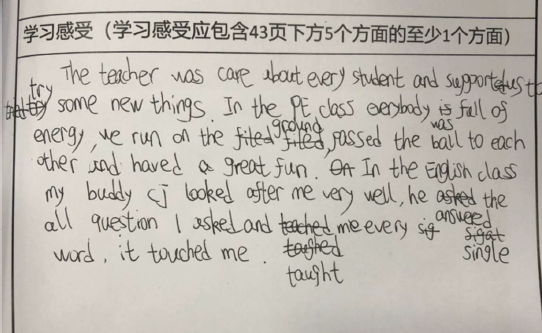 学习感受（学习感受应包含43页下方5个方面的至少1个方面）
The teacher was care about every student and supported us to
try some new things. In the PE class everybody was full of
energy, we run on the ground, passed the ball to each
other and haved a great fun. In the English class
my buddy CJ looked after me very well, he answered the
all question I asked and taught me every single
word, it touched me.